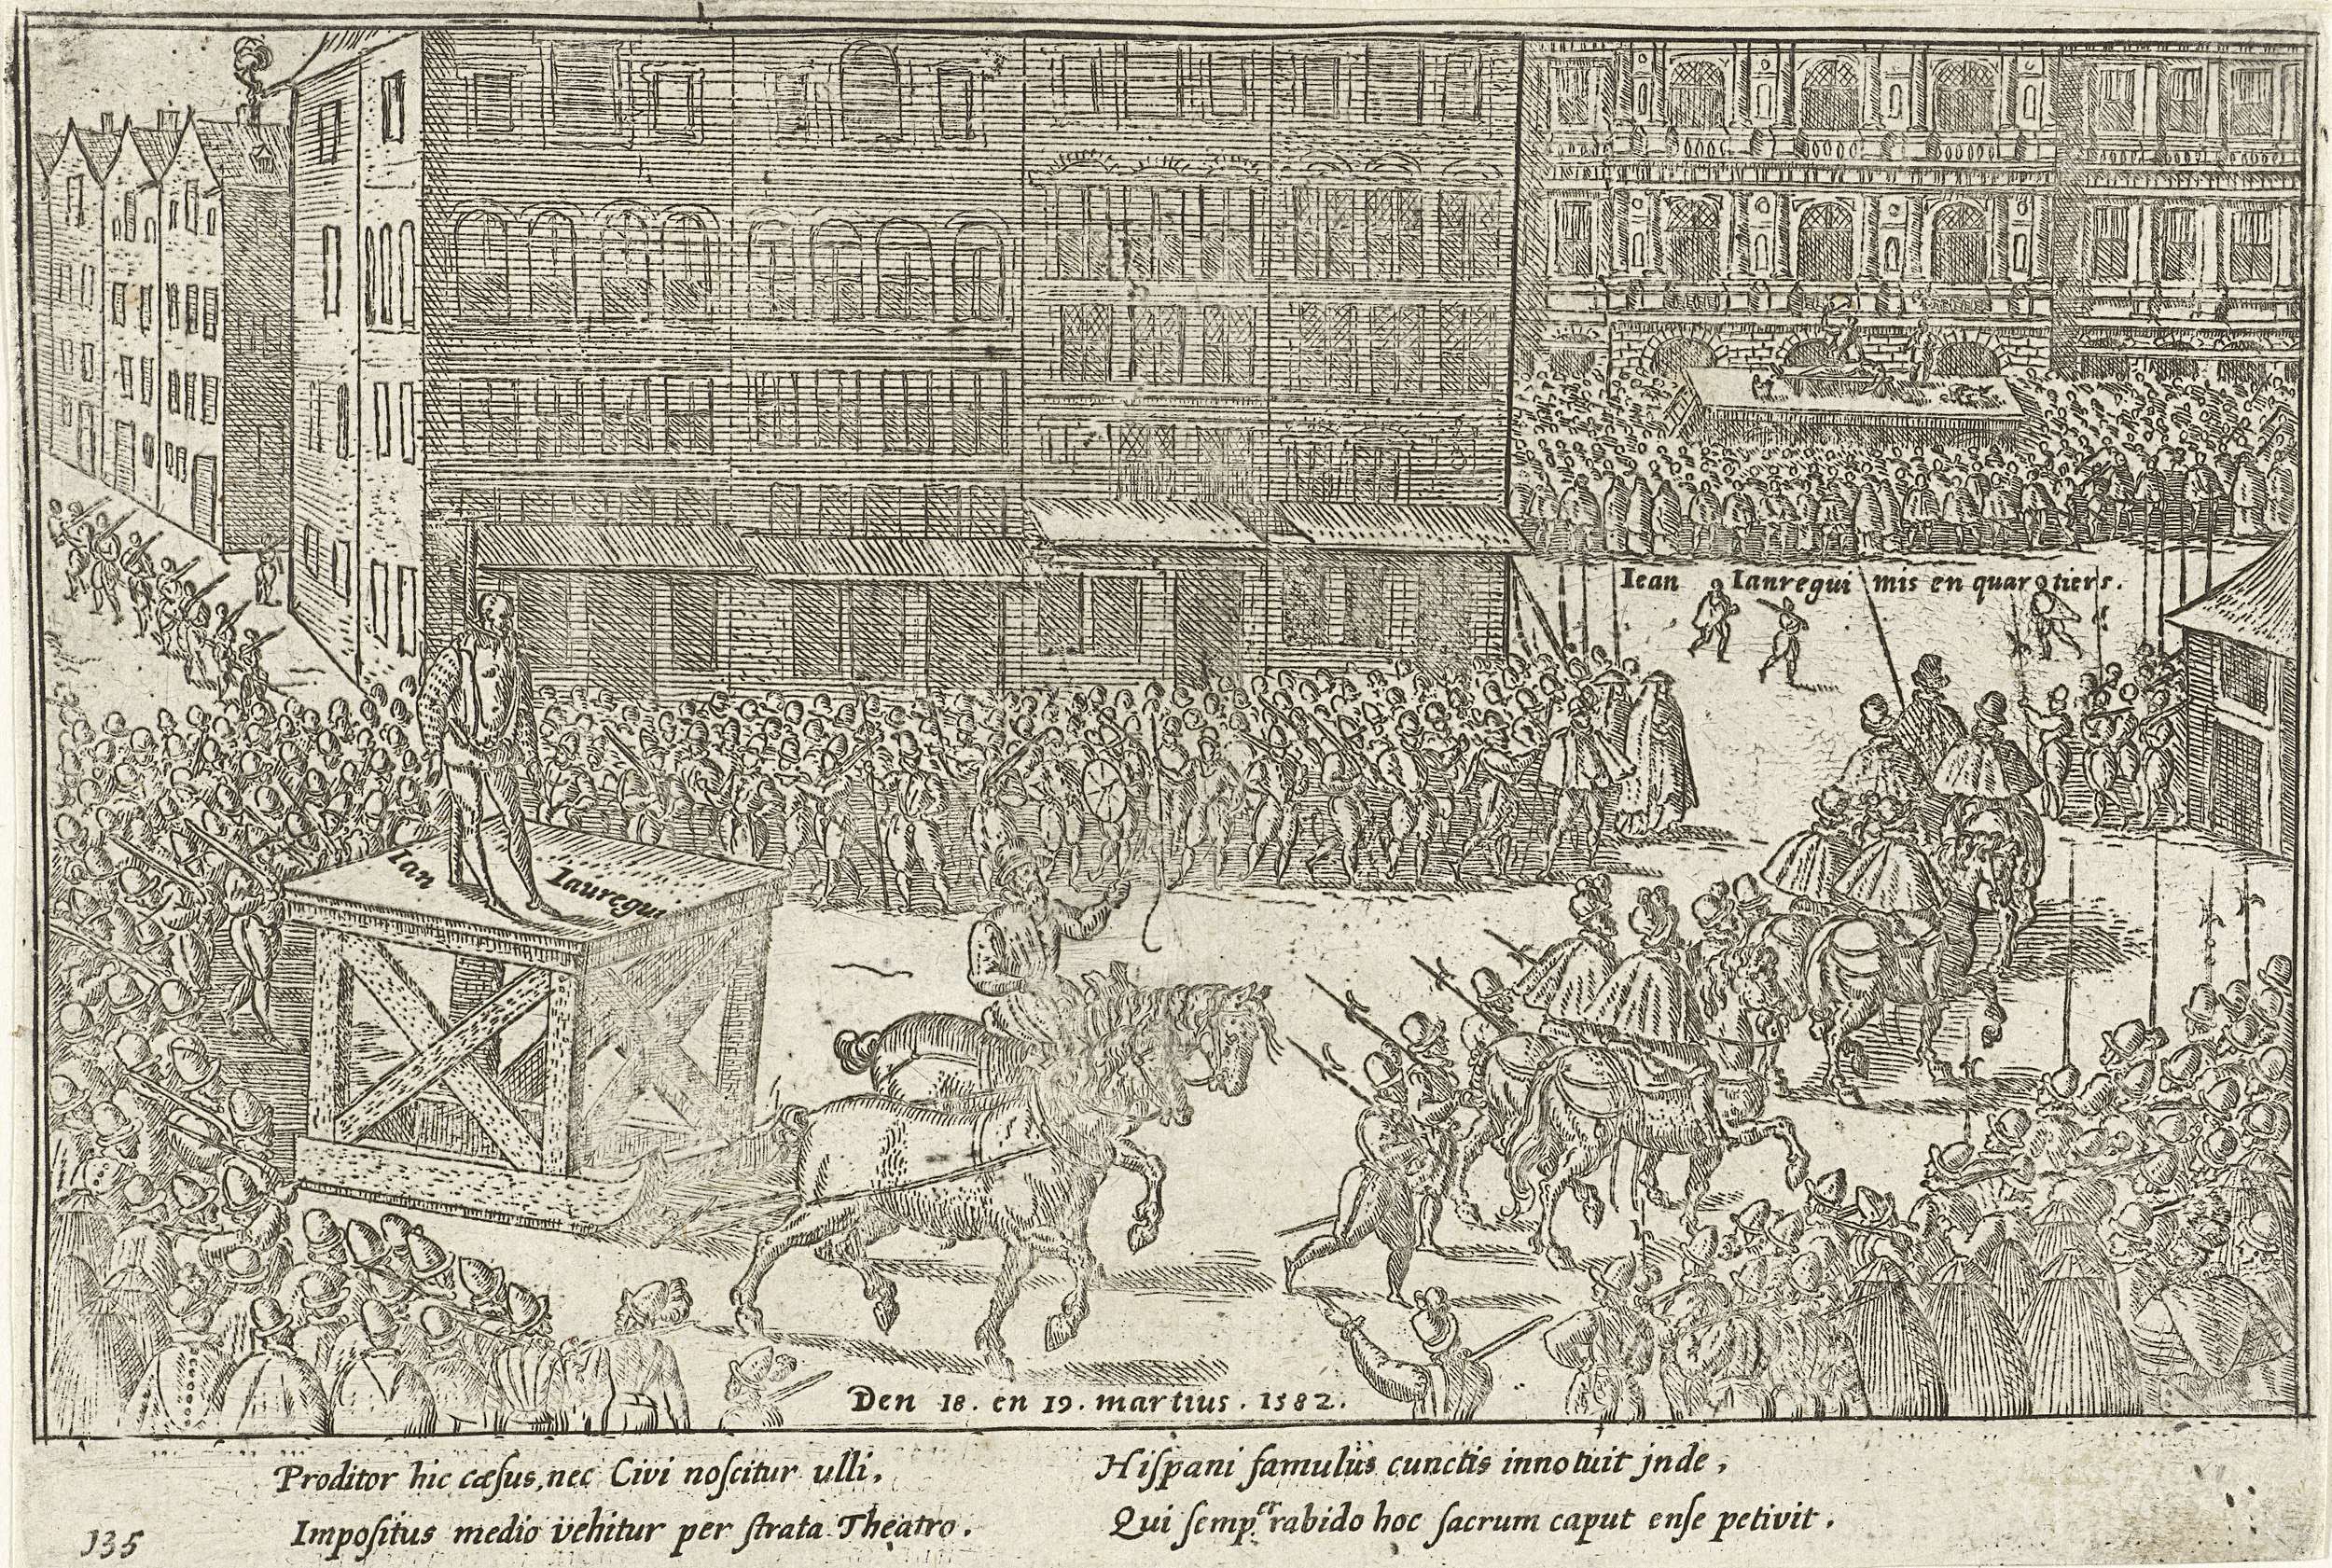 Iean Ianregui mis en quartiers.
Ian Iauregui
Den 18. en 19. martius. 1582.
Proditor hic cæſus, nec Civi noſcitur ulli,
Impoſitus medio vehitur per ſtrata Theatro.
Hiſpani famulus cunctis innotuit jnde,
Qui ſemp.er rabido hoc ſacrum caput enſe petivit.
135